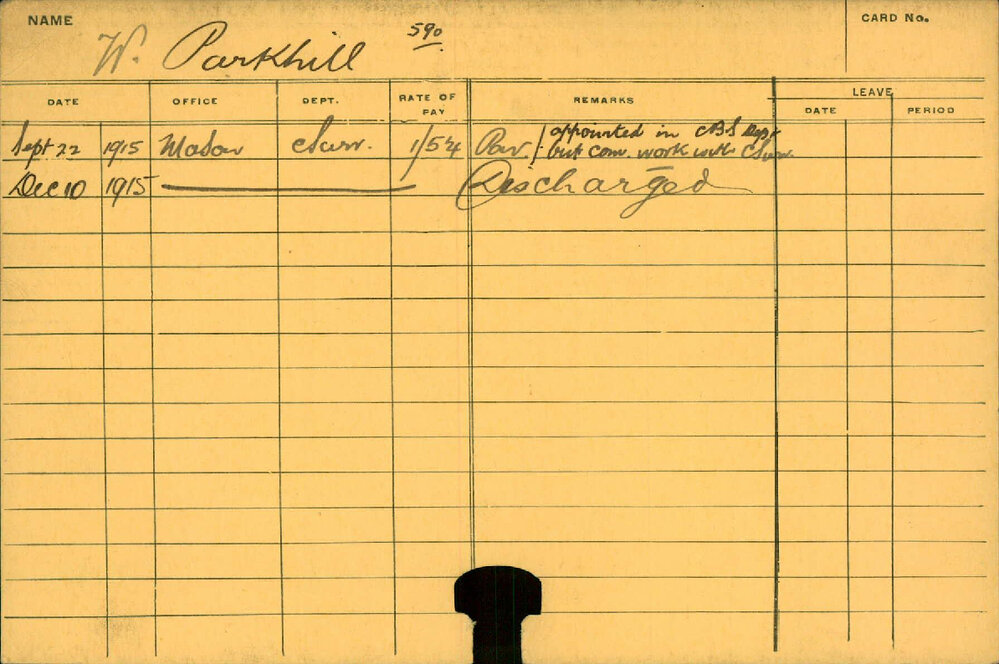 NAME
W. Parkhill 590
CARD No.
DATE OFFICE DEPT. RATE OF PAY REMARKS LEAVE
DATE PERIOD
Sept 22 1915 Mason CSurv. Pav. / appointed in CBS Dept
but com. work with CSurv.
Dec 10 1915 Discharged